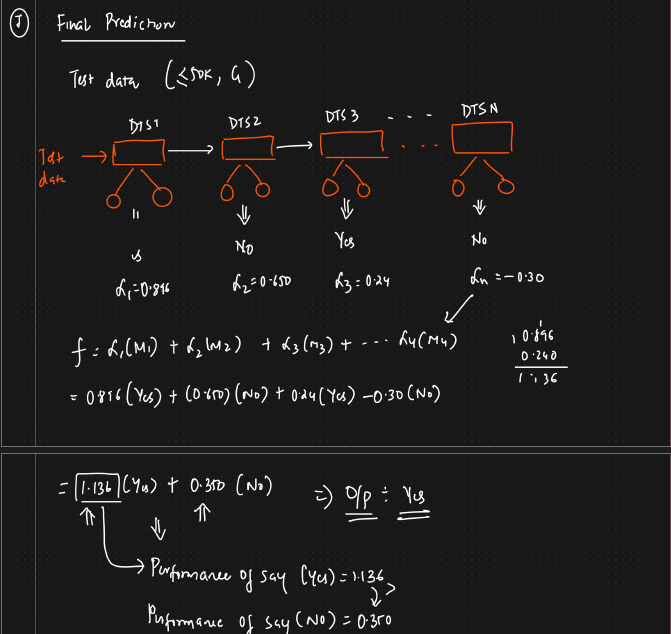 7 Final Prediction
Test data (≤50K, G)
DTS1 DTS2 DTS3 - - - DTSN
Test data
No Yes No
α₁=0.896 α₂=0.650 α₃=0.24 αn=-0.30
f = α₁(M₁) + α₂(M₂) + α₃(M₃) + --- α₄(M₄)
1
0.896
0.240
1.136
= 0.896(Yes) + (0.650)(No) + 0.24(Yes) -0.30(No)
= 1.136 (Yes) + 0.350 (No) => O/p ÷ Yes
Performance of say (Yes) = 1.136
>
Performance of say (No) = 0.350